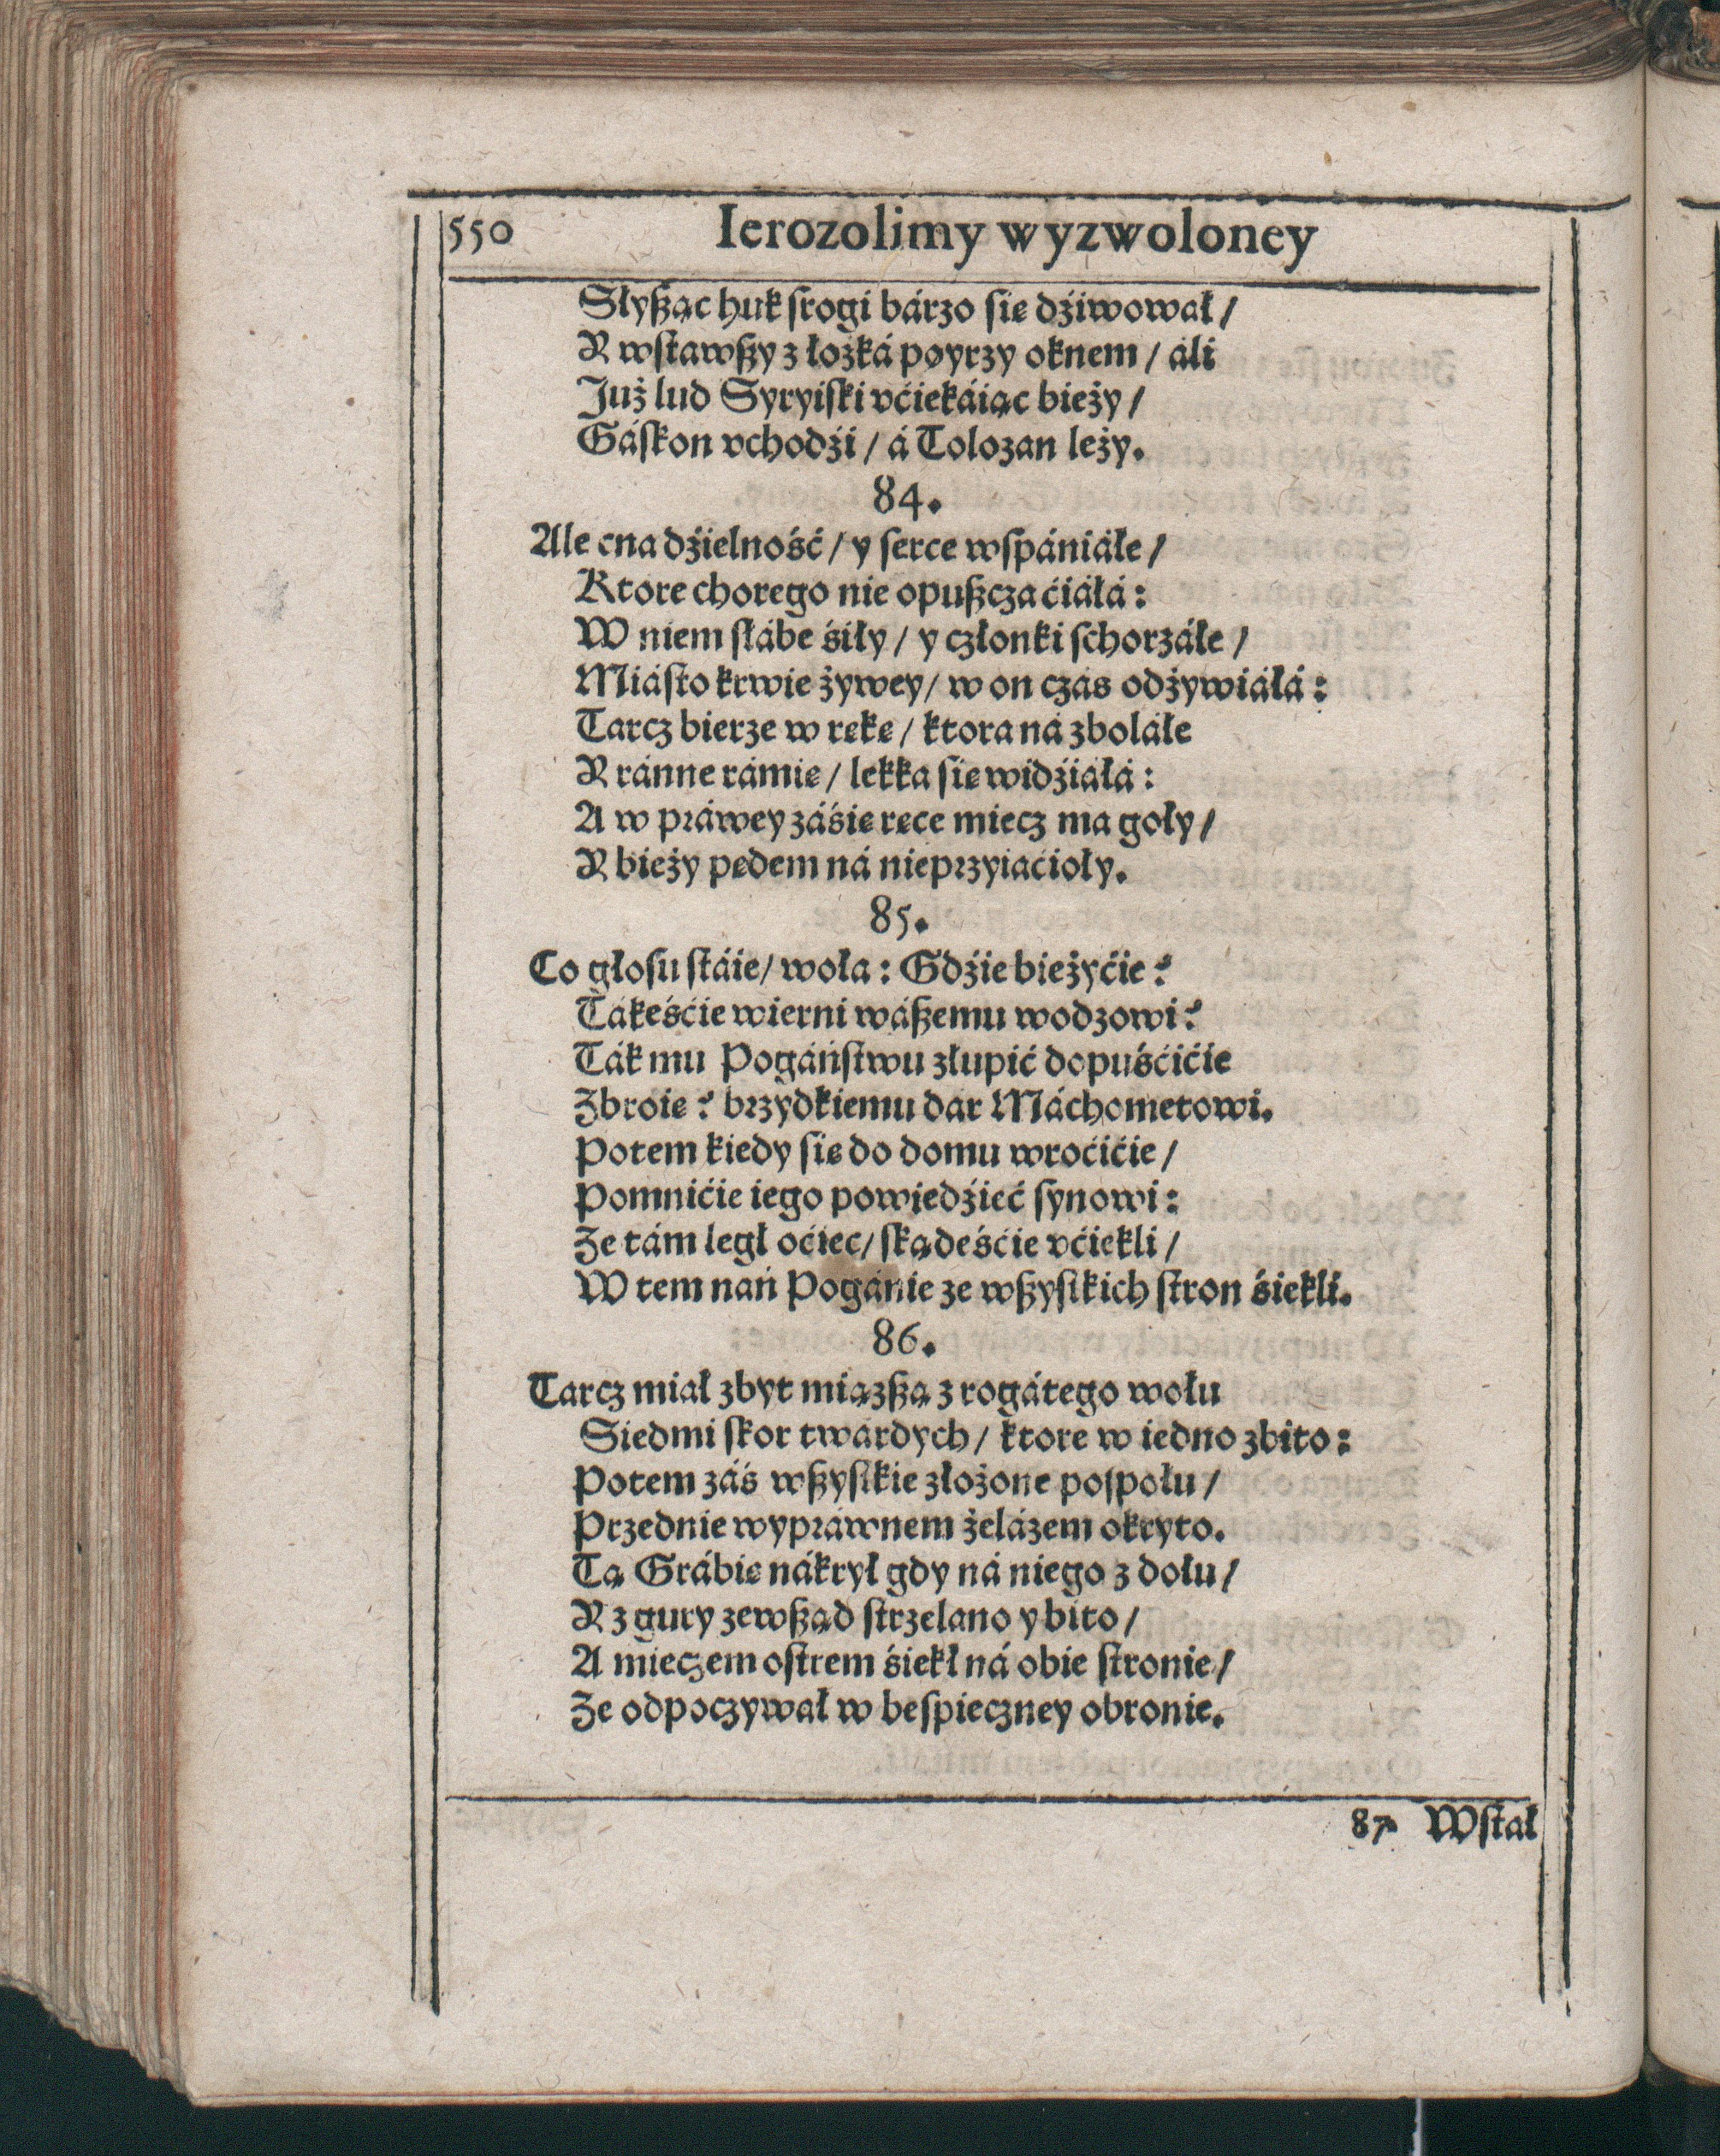 550 Ierozolimy wyzwoloney
Słyßąc huk ſrogi bárzo ſię dźiwował /
Y wſtawßy z łożká poyrzy oknem / áli
Już lud Syryiſki vćiekáiąc bieży /
Gáſkon vchodźi / á Tolozan leży.
84.
Ale cna dźielność / y ſerce wſpániáłe /
Ktore chorego nie opußcza ćiáłá:
W niem ſłábe śiły / y członki ſchorzáłe /
Miáſto krwie żywey / w on czás odżywiáłá:
Tarcz bierze w rękę / ktora ná zboláłe
Y ránne rámię / lekka ſię widźiáłá:
A w práwey záśię ręce miecz ma goły /
Y bieży pędem ná nieprzyiaćioły.
85.
Co głoſu ſtáie / woła: Gdźie bieżyćie?
Tákeśćie wierni wáßemu wodzowi?
Ták mu Pogáńſtwu złupić dopuśćićie
Zbroię? brzydkiemu dar Máchometowi.
Potem kiedy ſię do domu wroćićie /
Pomnićie iego powiedźieć ſynowi:
Że tám legł oćiec / ſkądeśćie vćiekli /
W tem nań Pogánie ze wßyſtkich ſtron śiekli.
86.
Tarcz miał zbyt miązßą z rogátego wołu
Siedmi ſkor twárdych / ktore w iedno zbito:
Potem záś wßyſtkie złożone poſpołu /
Przednie wypráwnem żelázem okryto.
Tą Grábię nákrył gdy ná niego z dołu /
Y z gury zewßąd ſtrzelano y bito /
A mieczem oſtrem śiekł ná obie ſtronie /
Że odpoczywał w beſpieczney obronie.
87. Wſtał